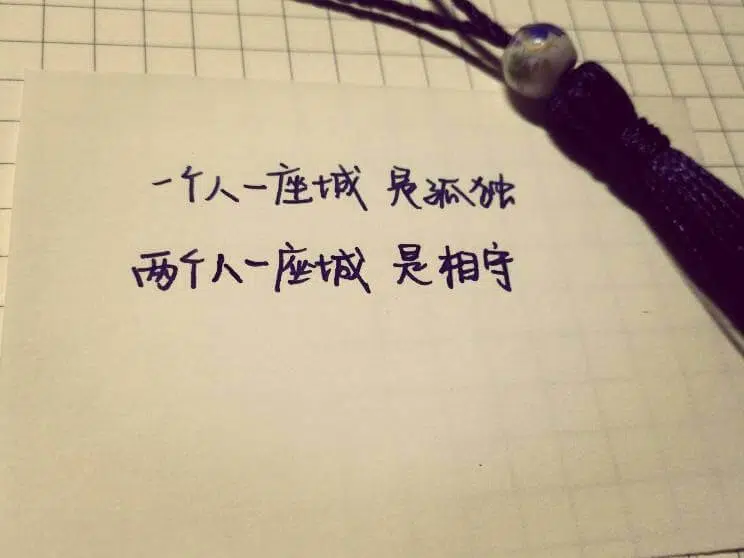 一个人一座城 是孤独
两个人一座城 是相守